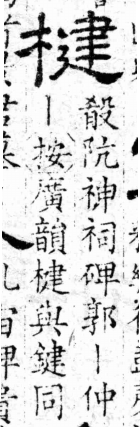 楗
殽阬神祠碑郭丨仲
丨按廣韻楗與鍵同